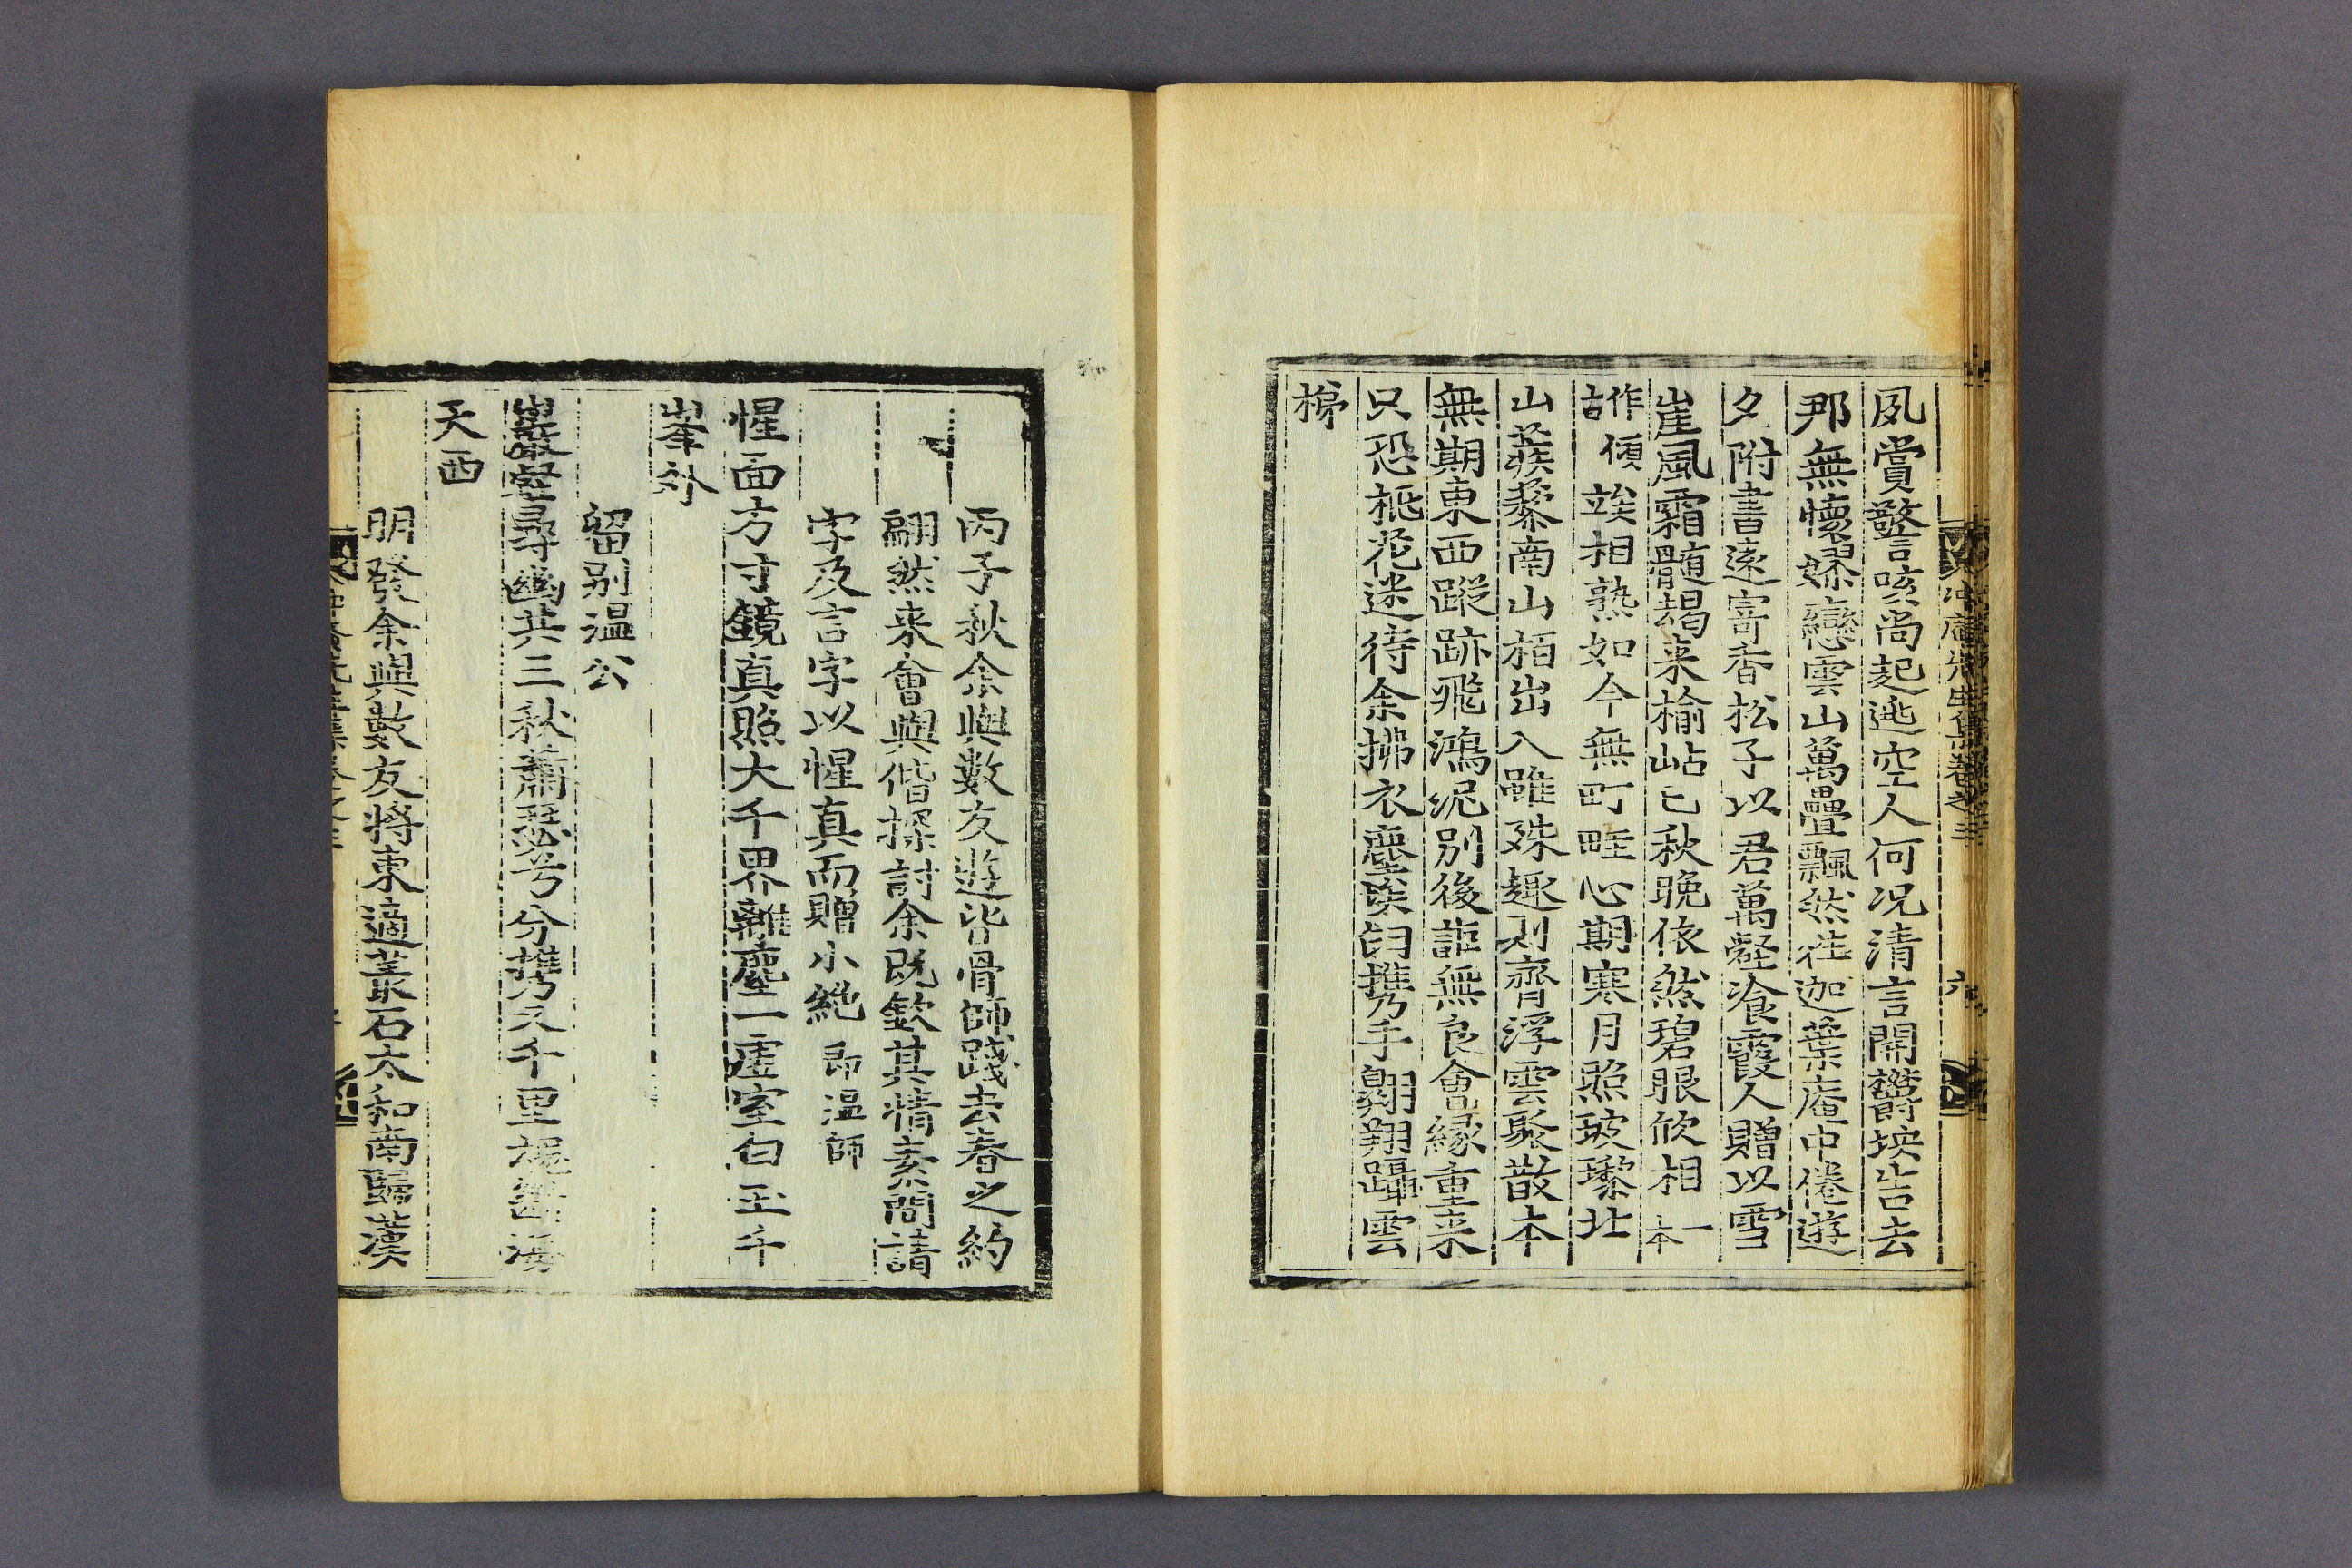 冲庵先生集卷之三 六
夙賞謦咳尚起逃空人何况清言開鬱坱告去
那無懷嫪戀雲山萬疊飄然往迦葉庵中倦遊
夕附書遠寄香松子以君萬壑飡霞人贈以雪
崖風霜髓朅来榆岾已秋晚依然碧眼欣相一本
作詰傾竢相熟如今無町畦心期寒月照玻瓈北
山蒺藜南山栢出入雖殊趣則齊浮雲聚散本
無期東西蹤跡飛鴻泥別後詎無良會緣重来
只恐桃花迷待余拂衣塵埃囱携手翺翔躡雲
梯
丙子秋余與數友遊皆骨師踐去春之約
翩然来會與偕探討余既欽其情素問請
字及言字以惺真而贈小絶 即温師
惺面方寸鏡真照大千界離塵一虛室白玉千
峯外
留别温公
巖壑尋幽共三秋蕭瑟兮分携又千里 海
天西
明發余與數友将東適叢石太和南歸漢